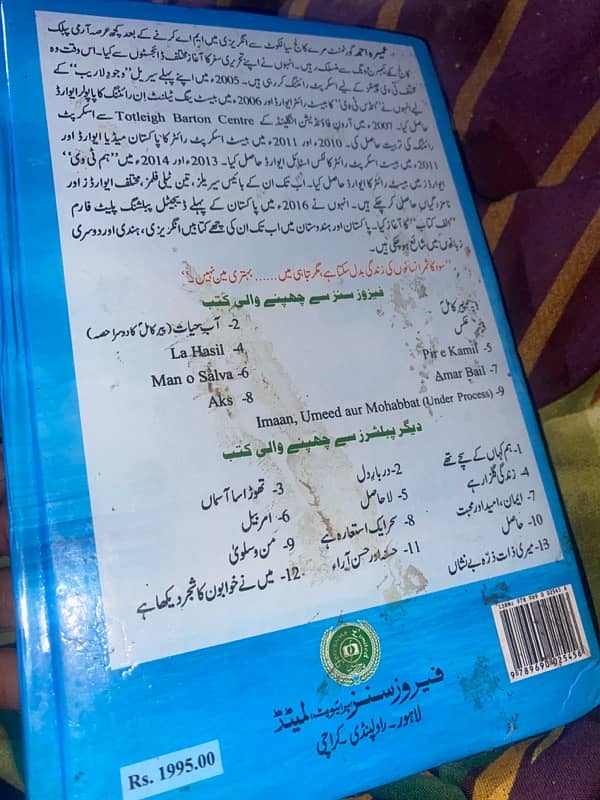 عمیرہ احمد گورنمنٹ مرے کالج سیالکوٹ سے انگریزی میں ایم اے کرنے کے بعد کچھ عرصہ آرمی پبلک
کالج کے کیمبرج ونگ سے منسلک رہیں۔ انہوں نے اپنے تحریری سفر کا آغاز مختلف ڈائجسٹوں سے کیا۔ اس وقت وہ
مختلف ٹی وی چینلز کے لیے اسکرپٹ رائٹنگ کر رہی ہیں۔ 2005ء میں اپنے پہلے سیریل ”وجودِ لاریب“ کے
لیے انہوں نے ”انڈس ٹی وی“ کا بیسٹ رائٹر ایوارڈ اور 2006ء میں بیسٹ ینگ ٹیلنٹ ان رائٹنگ کا پاپولر ایوارڈ
حاصل کیا۔ 2007ء میں آرون فاؤنڈیشن انگلینڈ کے Totleigh Barton Centre سے اسکرپٹ
رائٹنگ کی تربیت حاصل کی۔ 2010ء اور 2011ء میں بیسٹ اسکرپٹ رائٹر کا پاکستان میڈیا ایوارڈ اور
2011ء میں بیسٹ اسکرپٹ رائٹر کا لکس اسٹائل ایوارڈ حاصل کیا۔ 2013ء اور 2014ء میں ”ہم ٹی وی“
ایوارڈز میں بیسٹ رائٹر کا ایوارڈ حاصل کیا۔ اب تک ان کے بائیس سیریلز، تین ٹیلی فلمز، مختلف ایوارڈز اور
نامزدگیاں حاصل کر چکے ہیں۔ انہوں نے 2016ء میں پاکستان کے پہلے ڈیجیٹل پبلشنگ پلیٹ فارم
”الف کتاب“ کا آغاز کیا۔ پاکستان اور ہندوستان میں اب تک ان کی چھے کتابیں انگریزی، ہندی اور دوسری
زبانوں میں شائع ہو چکی ہیں۔
”سود کا ثمر انسانوں کی زندگی بدل سکتا ہے، مگر تباہی میں ...... بہتری میں نہیں۔“
فیروز سنز سے چھپنے والی کتب
1- پیر کاملؐ
2- آب حیات (پیر کاملؐ کا دوسرا حصہ)
عکس
4- La Hasil
5- Pir e Kamil
6- Man o Salva
7- Amar Bail
8- Aks
9- Imaan, Umeed aur Mohabbat (Under Process)
دیگر پبلشرز سے چھپنے والی کتب
1- ہم کہاں کے سچے تھے
2- دربارِ دل
3- تھوڑا سا آسماں
4- زندگی گلزار ہے
5- لاحاصل
6- امربیل
7- ایمان، امید اور محبت
8- سحر ایک استعارہ ہے
9- من و سلویٰ
10- حاصل
11- حسنہ اور حسن آراء
12- میں نے خوابوں کا شجر دیکھا ہے
13- میری ذات ذرّہ بے نشاں
ISBN: 978 969 0 02545 6
9789690025456
فیروز سنز (پرائیویٹ) لمیٹڈ
لاہور۔ راولپنڈی۔ کراچی
Rs. 1995.00